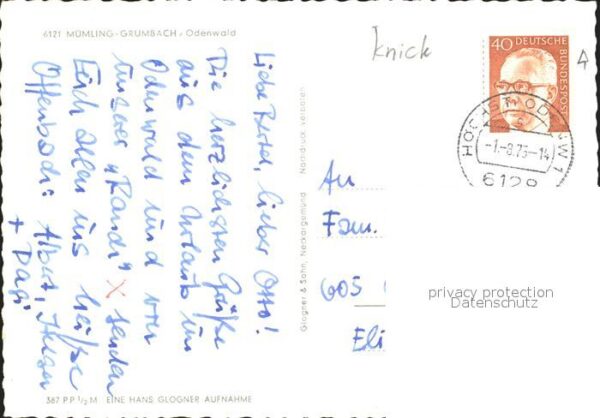 6121 MÜMLING-GRUMBACH, Odenwald
knick
4
40 DEUTSCHE
BUNDESPOST
-1.-8.75-14
6128
Liebe Bertel, lieber Otto!
Die herzlichsten Grüße
aus dem Urlaub im
Odenwald und von
unserer "Randi" x senden
Euch allen ins heiße
Offenbach: Albert,
+ Dagi
Nachdruck verboten
Glogner & Sohn, Neckargemünd
An
Fam.
605
Eli
privacy protection
Datenschutz
387 P P 1/2 M EINE HANS GLOGNER AUFNAHME